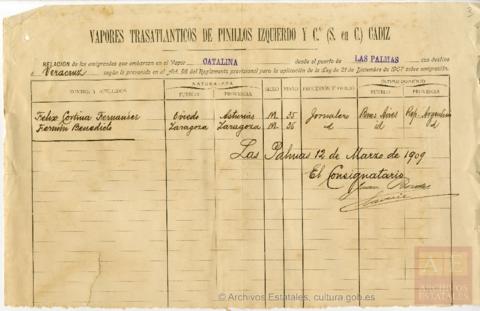 3
VAPORES TRASATLANTICOS DE PINILLOS IZQUIERDO Y C.ª (S. en C.) CADIZ
RELACION de los emigrantes que embarcan en el Vapor CATALINA desde el puerto de LAS PALMAS con destino
á Veracruz según lo prevenido en el Art. 88 del Reglamento provisional para la aplicación de la Ley de 21 Diciembre de 1907 sobre emigración.
NOMBRE Y APELLIDOS NATURALEZA SEXO EDAD PROFESIÓN Y OFICIO ULTIMO DOMICILIO
PUEBLO PROVINCIA PUEBLO PROVINCIA
Felix Cortina Fernandez Oviedo Asturias M. 35 Jornalero Buenos Aires Rep. Argentina
Fermin Benedicto Zaragoza Zaragoza M. 36 id id id
Las Palmas 12 de Marzo de 1909
El Consignatario
Juan
AE
ARCHIVOS
ESTATALES
© Archivos Estatales, cultura.gob.es